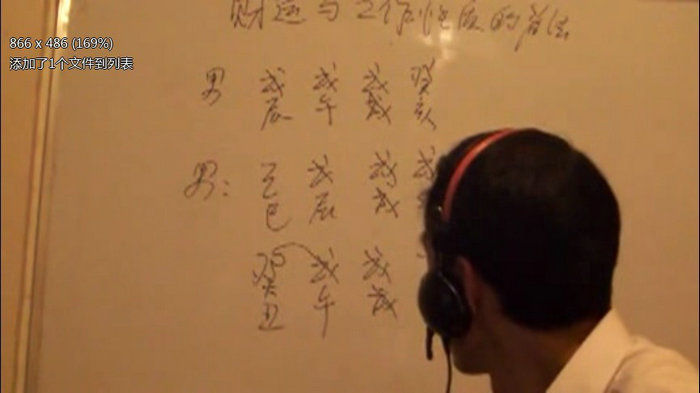 866 x 486 (169%)
添加了1个文件到列表
财运与工作性质的看法
男 戊 戊 戊 癸
辰 午 戌 亥
男: 己 戊 戊 戊
巳 辰 戌
癸 戊 戊
丑 午 戌